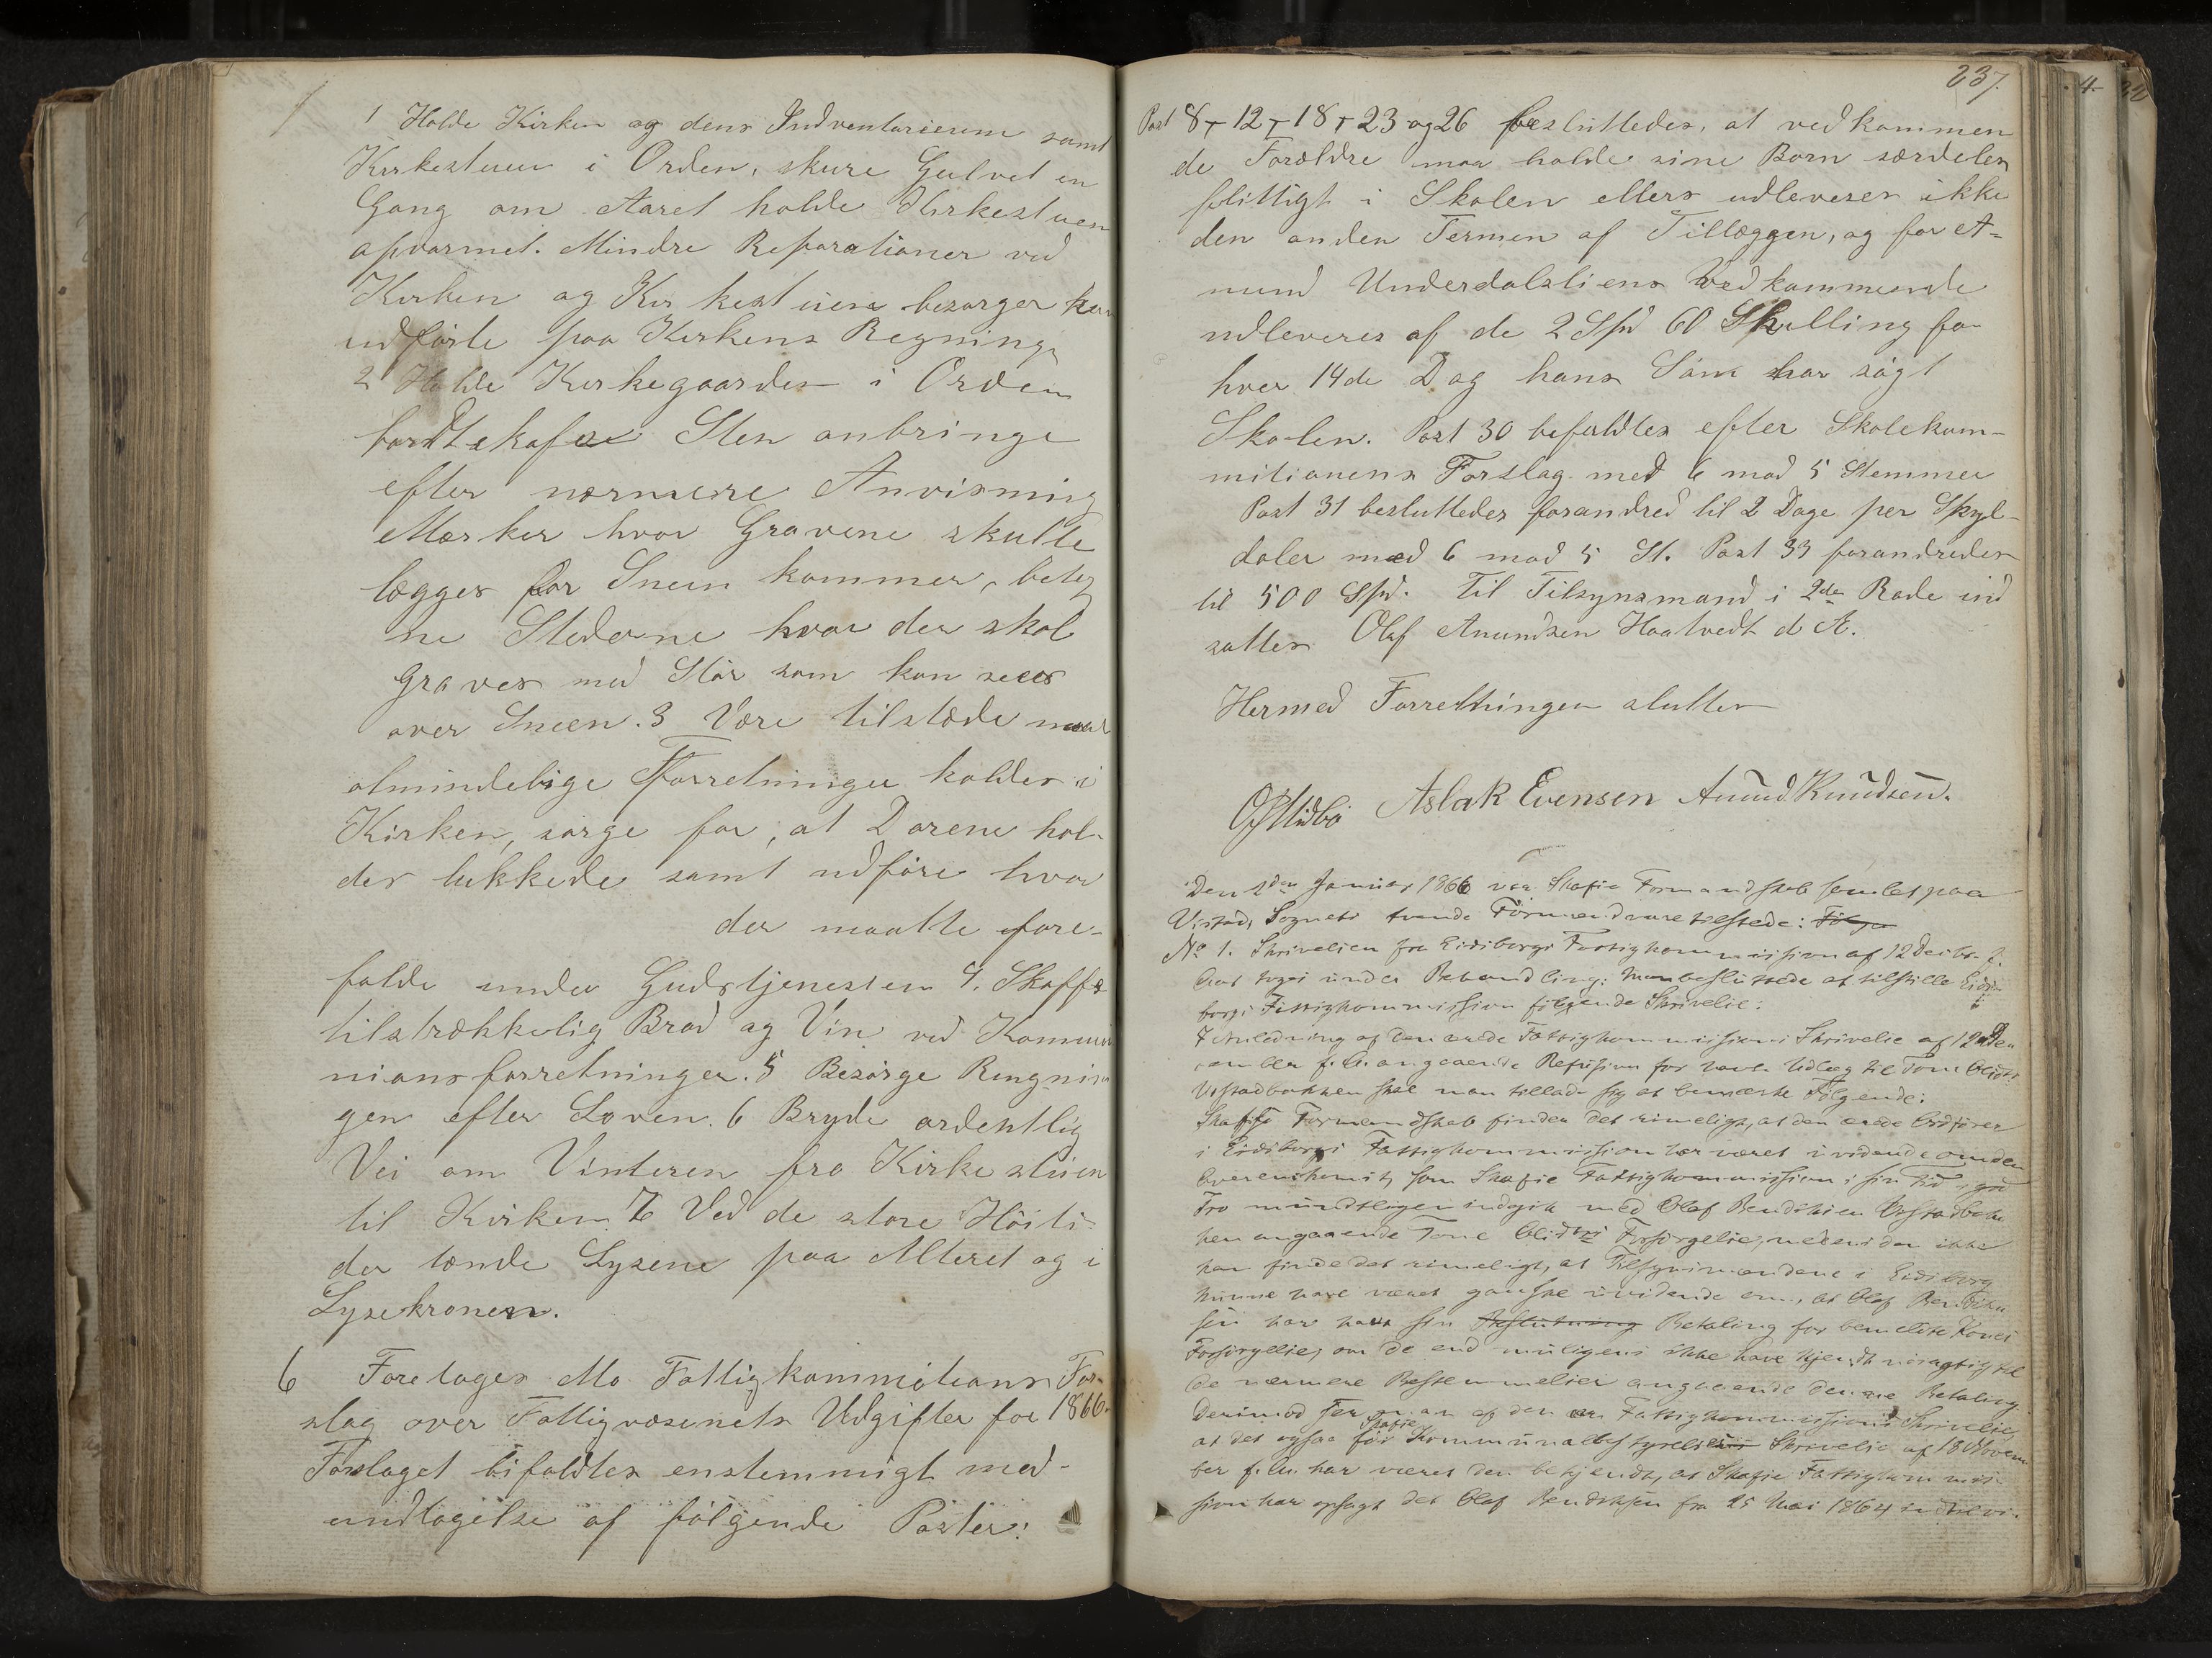 1 Holde Kirken og dens Indventariesum samt
Kirkestuen i Orden, skure Gulvet en
Gang om Aaret holde Kirkestuen
opvarmet. Mindre Reparationer ved
Kirken og Kirkestuen besørger han
udførte paa Kirkens Regning,
2 Holde Kirkegaarden i Orden
Sten anbringe
efter nærmere Anvisning
Mærker hvor Gravene skulle
lægges før Sneen kommer, beteg
ne Stederne hvor der skal
graves med Stör som kan sees
over Sneen. 3 Være tilstæde naar
almindelige Forretninger holdes i
Kirken, sørge for, at Dørene hol-
des lukkede samt udføre hvor
der maatte fore-
falde under Gudstjenesten 4. Skaffe
tilstrækkelig Brød og Vin ved Kommu
nionsforretninger. 5 Besørge Ringnin
gen efter Loven. 6 Bryde ordentlig
Vei om Vinteren fra Kirkestuen
til Kirken. 7 Ved de store Höiti-
der tænde Lysene paa Alteret og i
Lysekronen.
6 Foretoges Mo Fattigkommitions For-
slag over Fattigvæsenets Udgifter for 1866.
Forslaget bifaldtes enstemmigt med-
undtagelse af følgende Poster:
237.
Post 8 + 12 + 18 + 23 og 26 besluttedes, at vedkommen
de Forældre maa holde sine Børn særdeles
flittigt i Skolen ellers udleveres ikke
den anden Termen af Tillæggen, og for A-
mund Underdalsliens Vedkommende
udleveres af de 2 Spd 60 Skilling for
hver 14de Dag hans Sön har søgt
Skolen. Post 30 bifaldtes efter Skolekom-
mitionens Forslag med 6 mod 5 Stemmer
Post 31 besluttedes forandred til 2 Dage per Skyl-
daler med 6 mod 5 St. Post 33 forandredes
til 500 Spd. Til Tilsynsmand i 2den Rode ind
sattes Olaf Anundsen Haatvedt d Æ.
Hermed Forretningen sluttes
Aslak Evensen Anund Knudsen.
Den 2den Januar 1866 var Skafse Formandskab samlet paa
Vistad, Sognets tvende Formænd vare tilstede: Følgen
No 1. Skrivelsen fra Eidsborgs Fattigkommission af 12 Decbr. f.
Aar toges under Behandling: Man besluttede at tilstille Eids-
borgs Fattigkommission følgende Skrivelse:
I Anledning af den ærede Fattigkommissions Skrivelse af 12 Dec
ember f. A. angaaende Refusion for havt Udlæg til Tone Olidtr
Vistadbakken skal man tillade sig at bemærke Følgende:
Skafse Formandskab finder det rimeligt, at den ærede Ordfører
i Eidsborgs Fattigkommission har været uvidende om den
Overenskomst, som Skafse Fattigkommission i sin Tid i god
Tro mundtligen indgik med Olaf Bendiksen Vistadbak
ken angaaende Tone Olidtr Forsørgelse, medens den ikke
kan finde det rimeligt, at Tilsynsmændene i Eidsborg
kunne have været ganske uvidende om, at Olaf Bendik
sen har havt sin Beslutning Betaling for bemeldte Kones
Forsørgelse, om de end muligens ikke have kjendt nøiagtig til
de nærmere Bestemmelser angaaende denne Betaling.
Derimod ser man af den ær. Fattigkommissions Skrivelse,
at det ogsaa før Skafse Kommunalbestyrelses Skrivelse af 18 Novem
ber f. A. har været den bekjendt, at Skafse Fattigkommis-
sion har opsagt det Olaf Bendiksen fra 25 Mai 1864